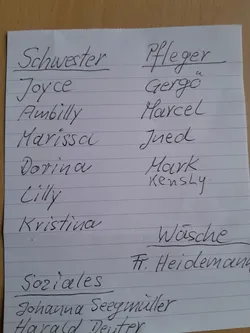 Schwester
Joyce
Ambilly
Marissa
Dorina
Lilly
Kristina
Pfleger
Gergö
Marcel
Jned
Mark
Kensky
Wäsche
Fr. Heidemann
Soziales
Johanna Seegmüller
Harald Deuter